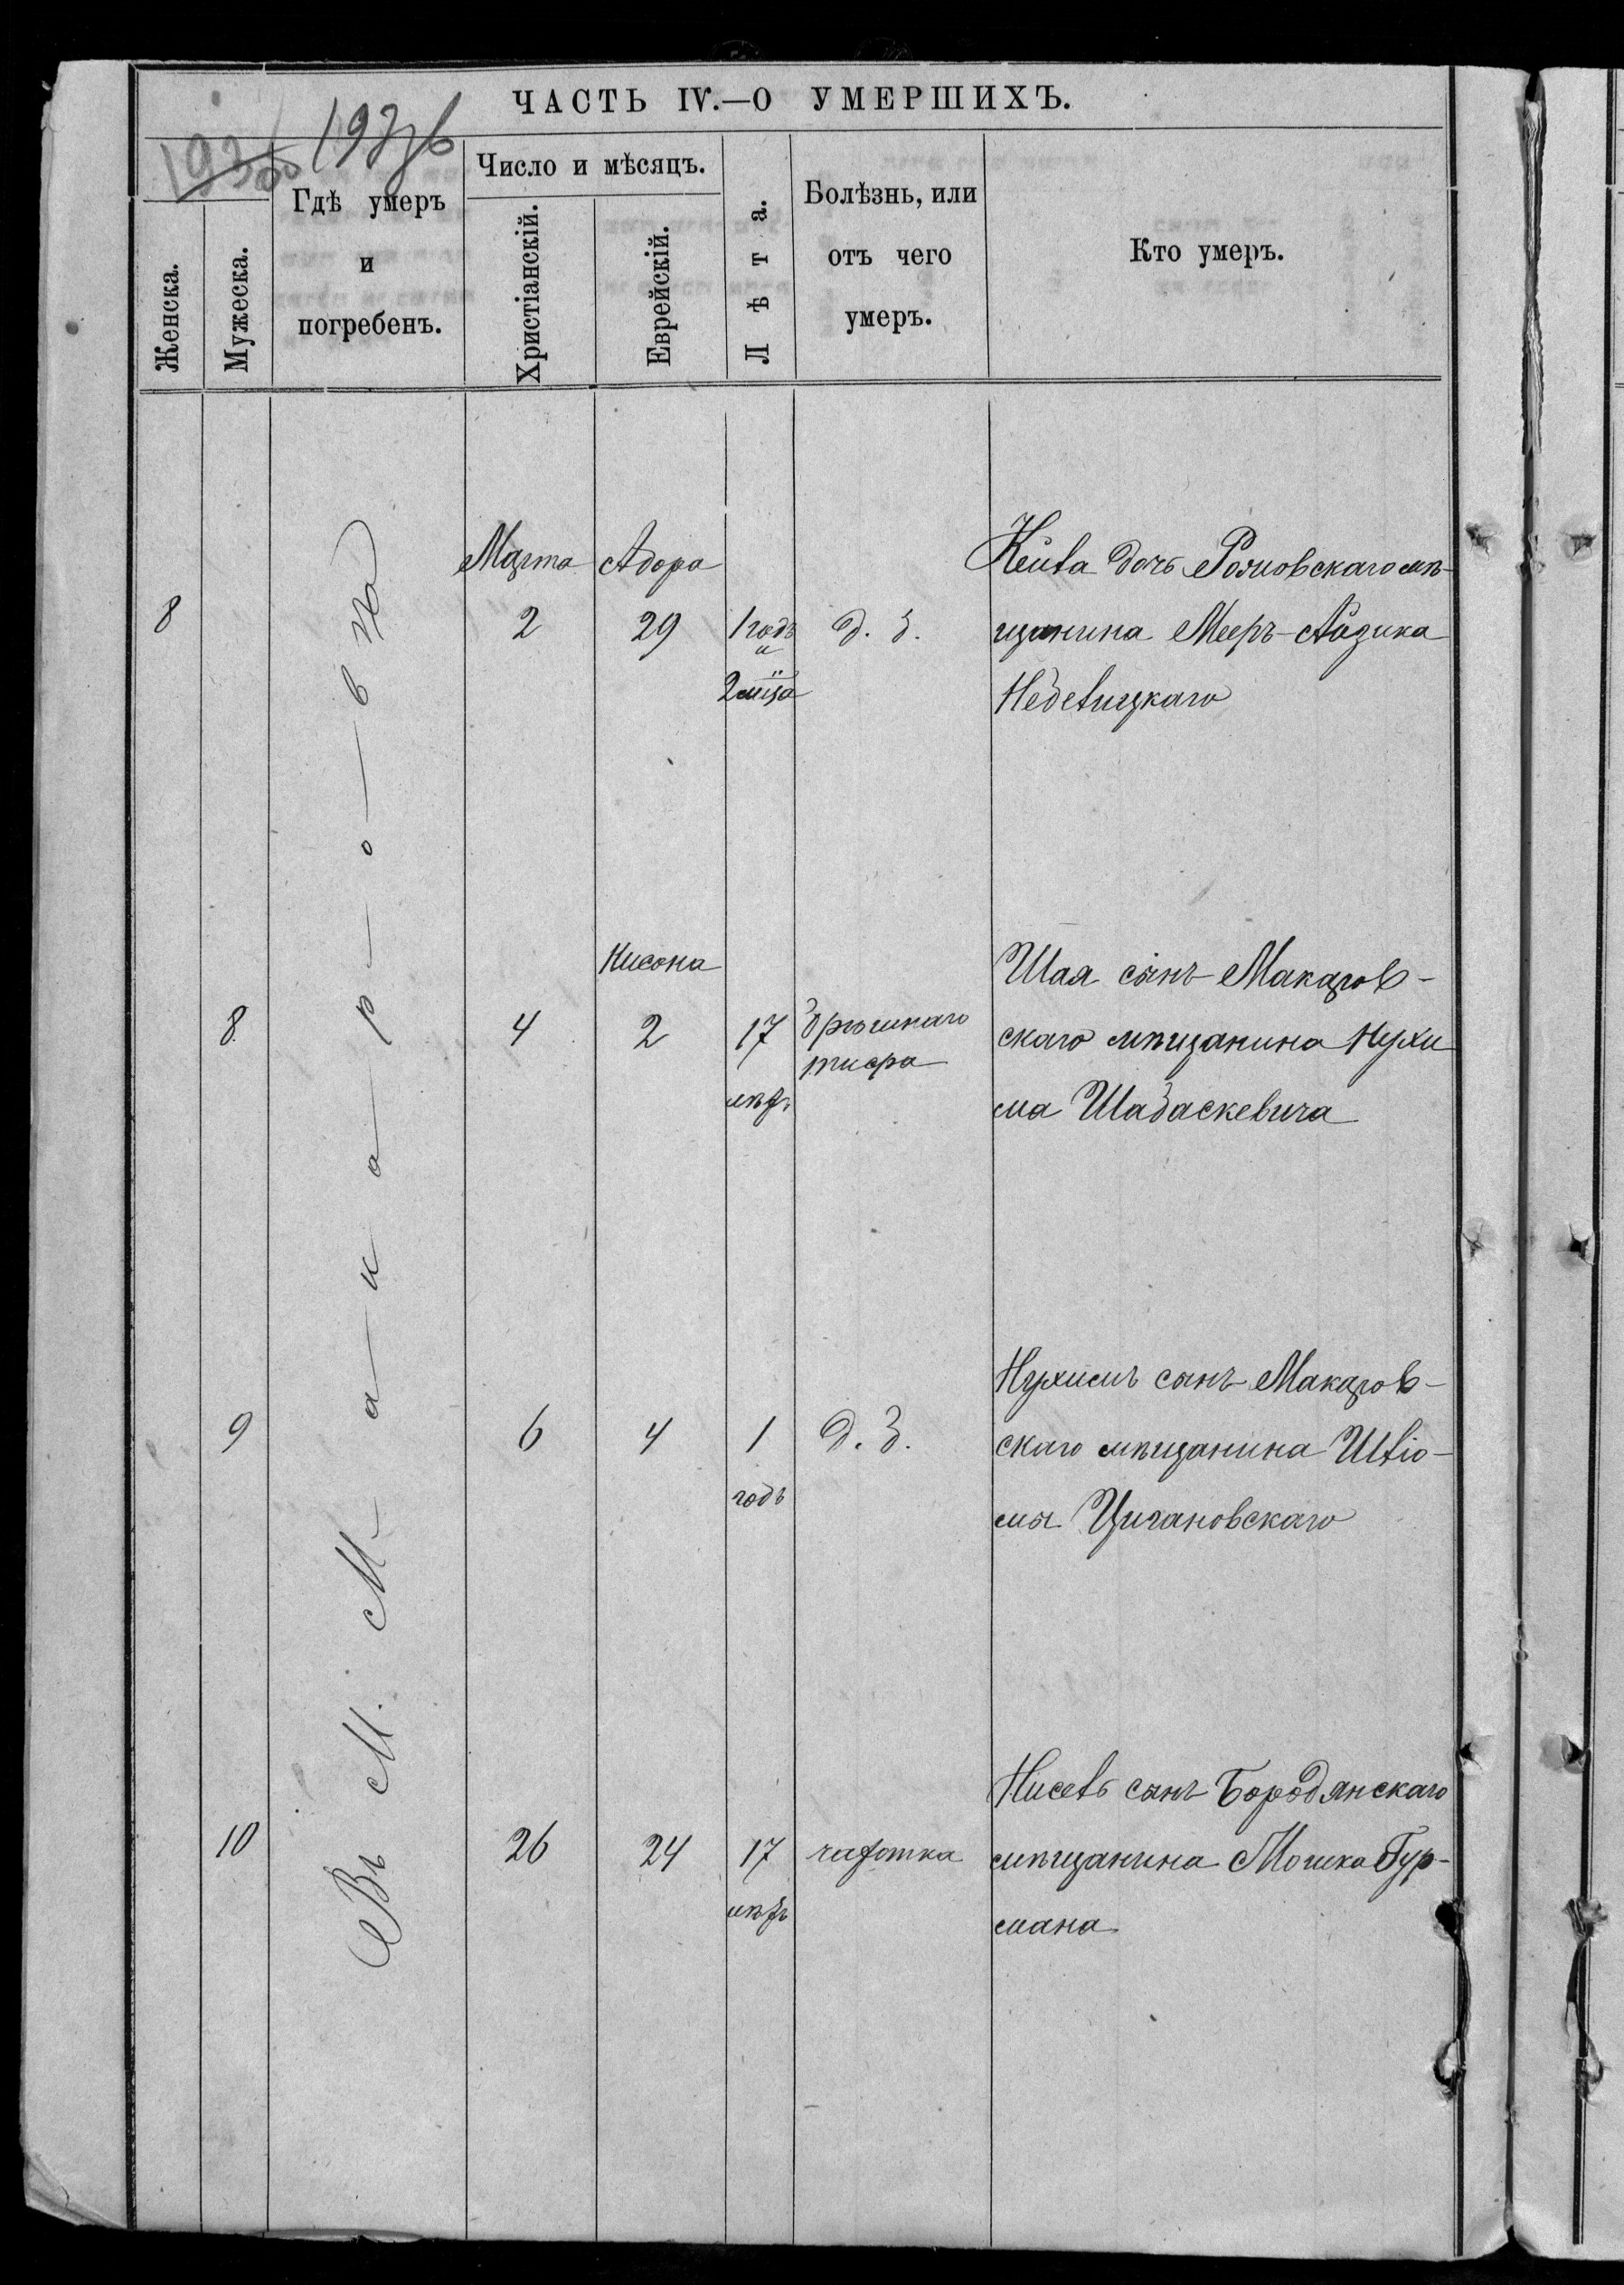 ЧАСТЬ IV.—О УМЕРШИХЪ.
Женска.
Мужеска.
Гдѣ умеръ
и
погребенъ.
Число и мѣсяцъ.
Христіанскій.
Еврейскій.
Лѣта.
Болѣзнь, или
отъ чего
умеръ.
Кто умеръ.
Въ М. Макаровѣ
Марта Адора
8 2 29 1 годъ
и
2 мца
д. б.
дочь мѣ-
щанина Меер-Айзика
Недевицкаго
Нисона
8 4 2 17
лѣтъ
брюшнаго
тифа
Шая сынъ Макаров-
скаго мѣщанина Нухи
ма Шабаскевича
9 6 4 1
годъ
д. б.
Нухимъ сынъ Макаров-
скаго мѣщанина Шліо-
мы Цигановскаго
10 26 24 17
лѣтъ
чахотка
Нисель сынъ Бородянскаго
мѣщанина Мошка Гур-
мана